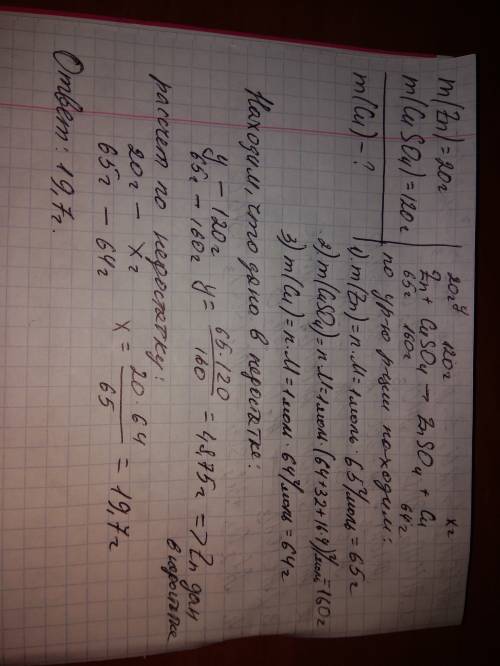 m(Zn)=20г
m(CuSO4)=120г
m(Cu)-?
20г y 120г xг
Zn + CuSO4 → ZnSO4 + Cu
65г 160г 64г
по ур-ю р-ции находим:
1) m(Zn)=n·M=1моль·65г/моль=65г
2) m(CuSO4)=n·M=1моль·(64+32+16·4)г/моль=160г
3) m(Cu)=n·M=1моль·64г/моль=64г
Находим, что дано в недостатке:
y – 120г
65г – 160г y = 65·120 / 160 = 48,75г => Zn дан
в недостатке
рассчет по недостатку:
20г – xг
65г – 64г x = 20·64 / 65 = 19,7г
Ответ: 19,7г.